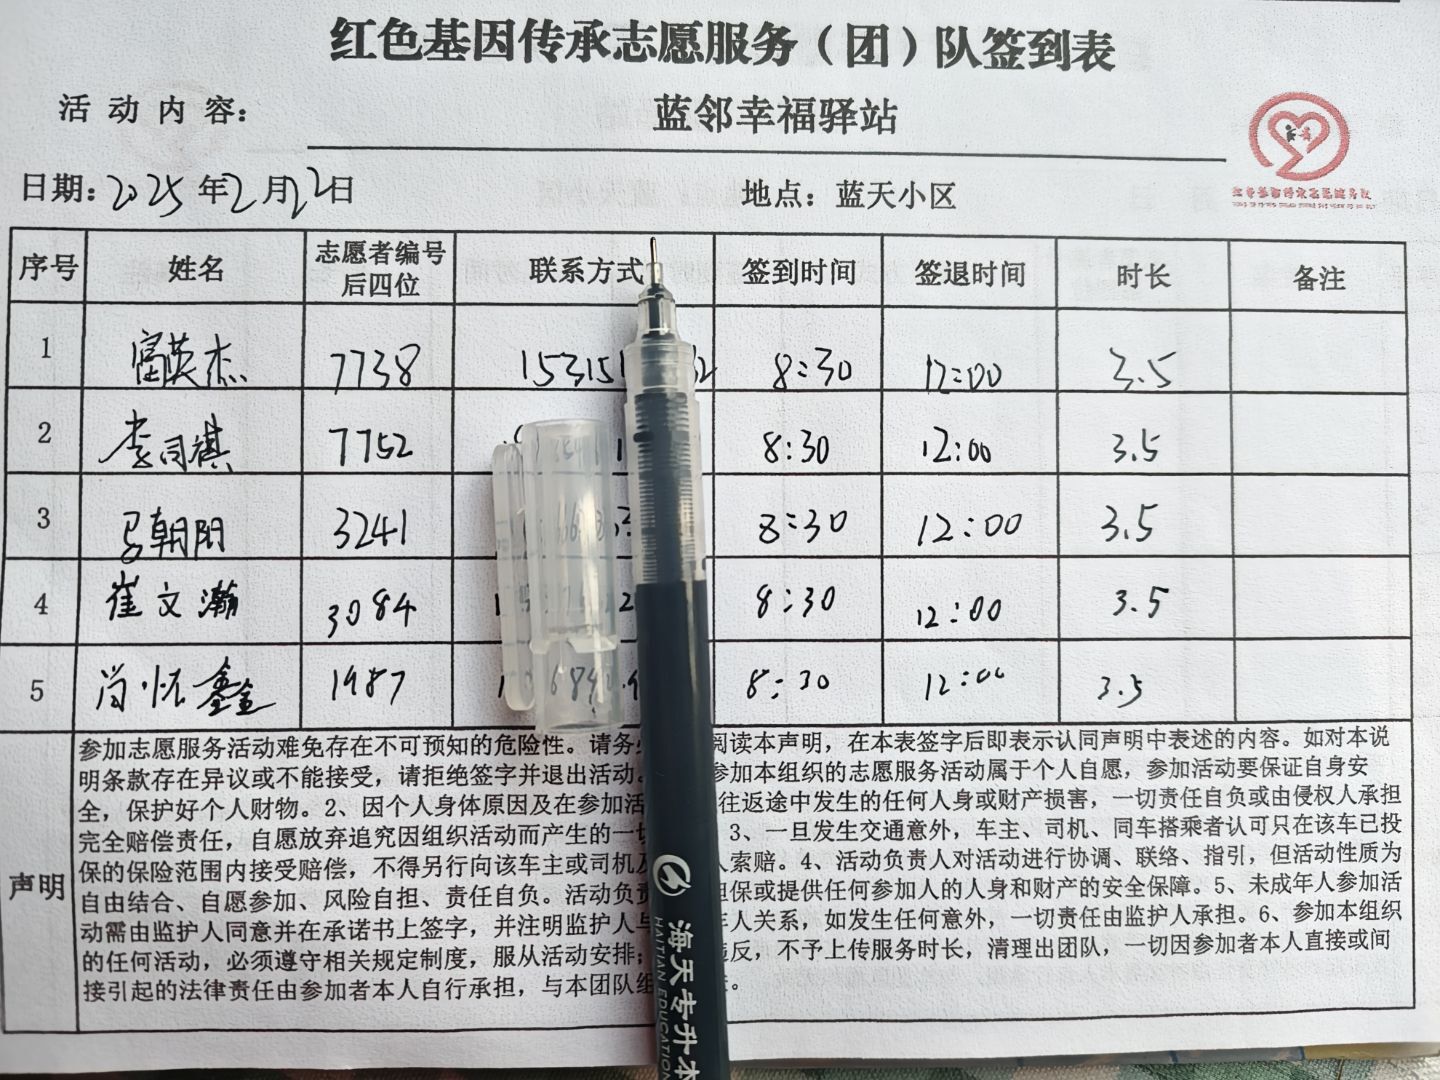 红色基因传承志愿服务（团）队签到表
活动内容： 蓝邻幸福驿站
日期：2025年2月22日 地点：蓝天小区
序号 姓名 志愿者编号后四位 联系方式 签到时间 签退时间 时长 备注
1 英杰 7738 15315 8:30 12:00 3.5
2 李同祺 7752 8:30 12:00 3.5
3 马朝阳 3241 8:30 12:00 3.5
4 崔文瀚 3084 8:30 12:00 3.5
5 尚怀鑫 1987 8:30 12:00 3.5
声明
参加志愿服务活动难免存在不可预知的危险性。请务 阅读本声明，在本表签字后即表示认同声明中表述的内容。如对本说
明条款存在异议或不能接受，请拒绝签字并退出活动。 参加本组织的志愿服务活动属于个人自愿，参加活动要保证自身安
全，保护好个人财物。2、因个人身体原因及在参加活 往返途中发生的任何人身或财产损害，一切责任自负或由侵权人承担
完全赔偿责任，自愿放弃追究因组织活动而产生的一 3、一旦发生交通意外，车主、司机、同车搭乘者认可只在该车已投
保的保险范围内接受赔偿，不得另行向该车主或司机 人索赔。4、活动负责人对活动进行协调、联络、指引，但活动性质为
自由结合、自愿参加、风险自担、责任自负。活动负责 担保或提供任何参加人的人身和财产的安全保障。5、未成年人参加活
动需由监护人同意并在承诺书上签字，并注明监护人与 人关系，如发生任何意外，一切责任由监护人承担。6、参加本组织
的任何活动，必须遵守相关规定制度，服从活动安排； 违反，不予上传服务时长，清理出团队，一切因参加者本人直接或间
接引起的法律责任由参加者本人自行承担，与本团队组 。
海天专升本
HAITIAN EDUCATION